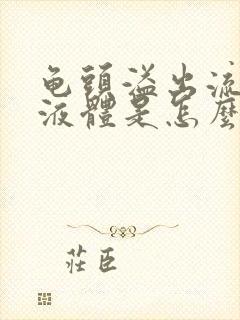 龟頭溢出流
液體是怎麼
莊臣